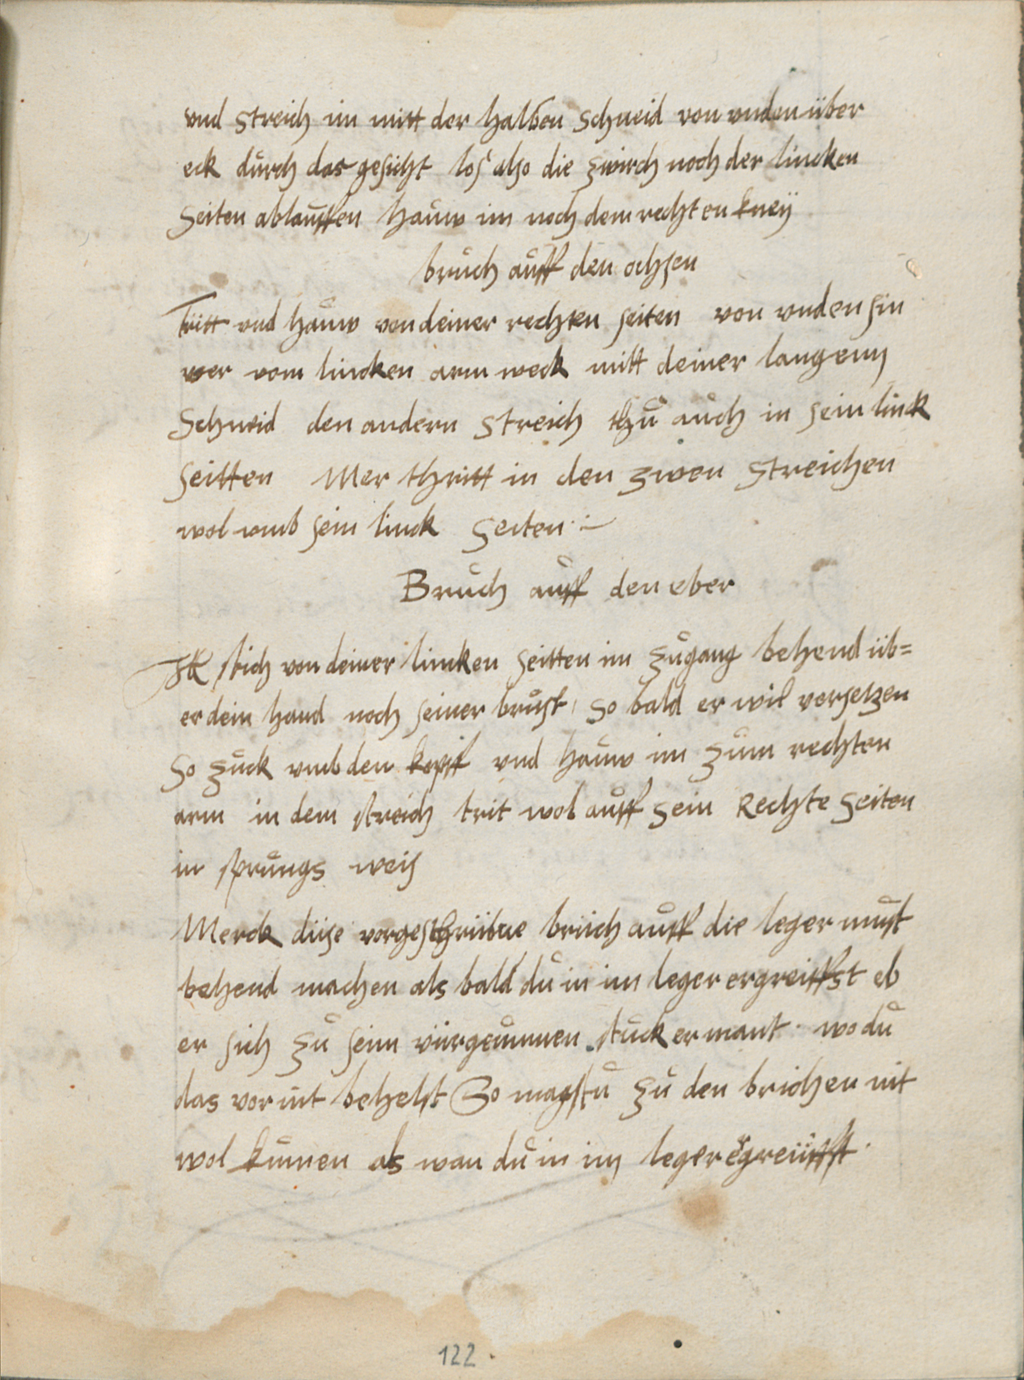 vnd streich im mitt der halben schneid von vnden über
eck durch das gesicht los also die zwirch noch der lincken
Seiten ablauffen hauw im noch dem rechten kneÿ
bruch auff den ochsen
tritt vnd hauw von deiner rechten seiten von vnden sin
wer vom lincken arm weck mitt deiner langenn
Schneid den andern streich thu auch in sein linck
seitten Mer thritt in den zwen streichen
wol vmb sein linck seiten :-
Bruch auff den eber
stich von deiner lincken seitten im zugang behend üb=
er dein hand noch seiner brust so bald er wil versetzen
So zuck vmb den kopff vnd hauw im zum rechten
arm in dem streich trit wol auff sein Rechte Seiten
in sprungs weis
Merck diise vorgeschriibne briich auff die leger must
behend machen als bald du in im leger ergreiffst eb
er sich zu seim vürgenumen stuck ermant. wo du
das vor nit behelst So magstu zu den brichen nit
wol kumen als wan du in im leger ergreiiffst.
122.